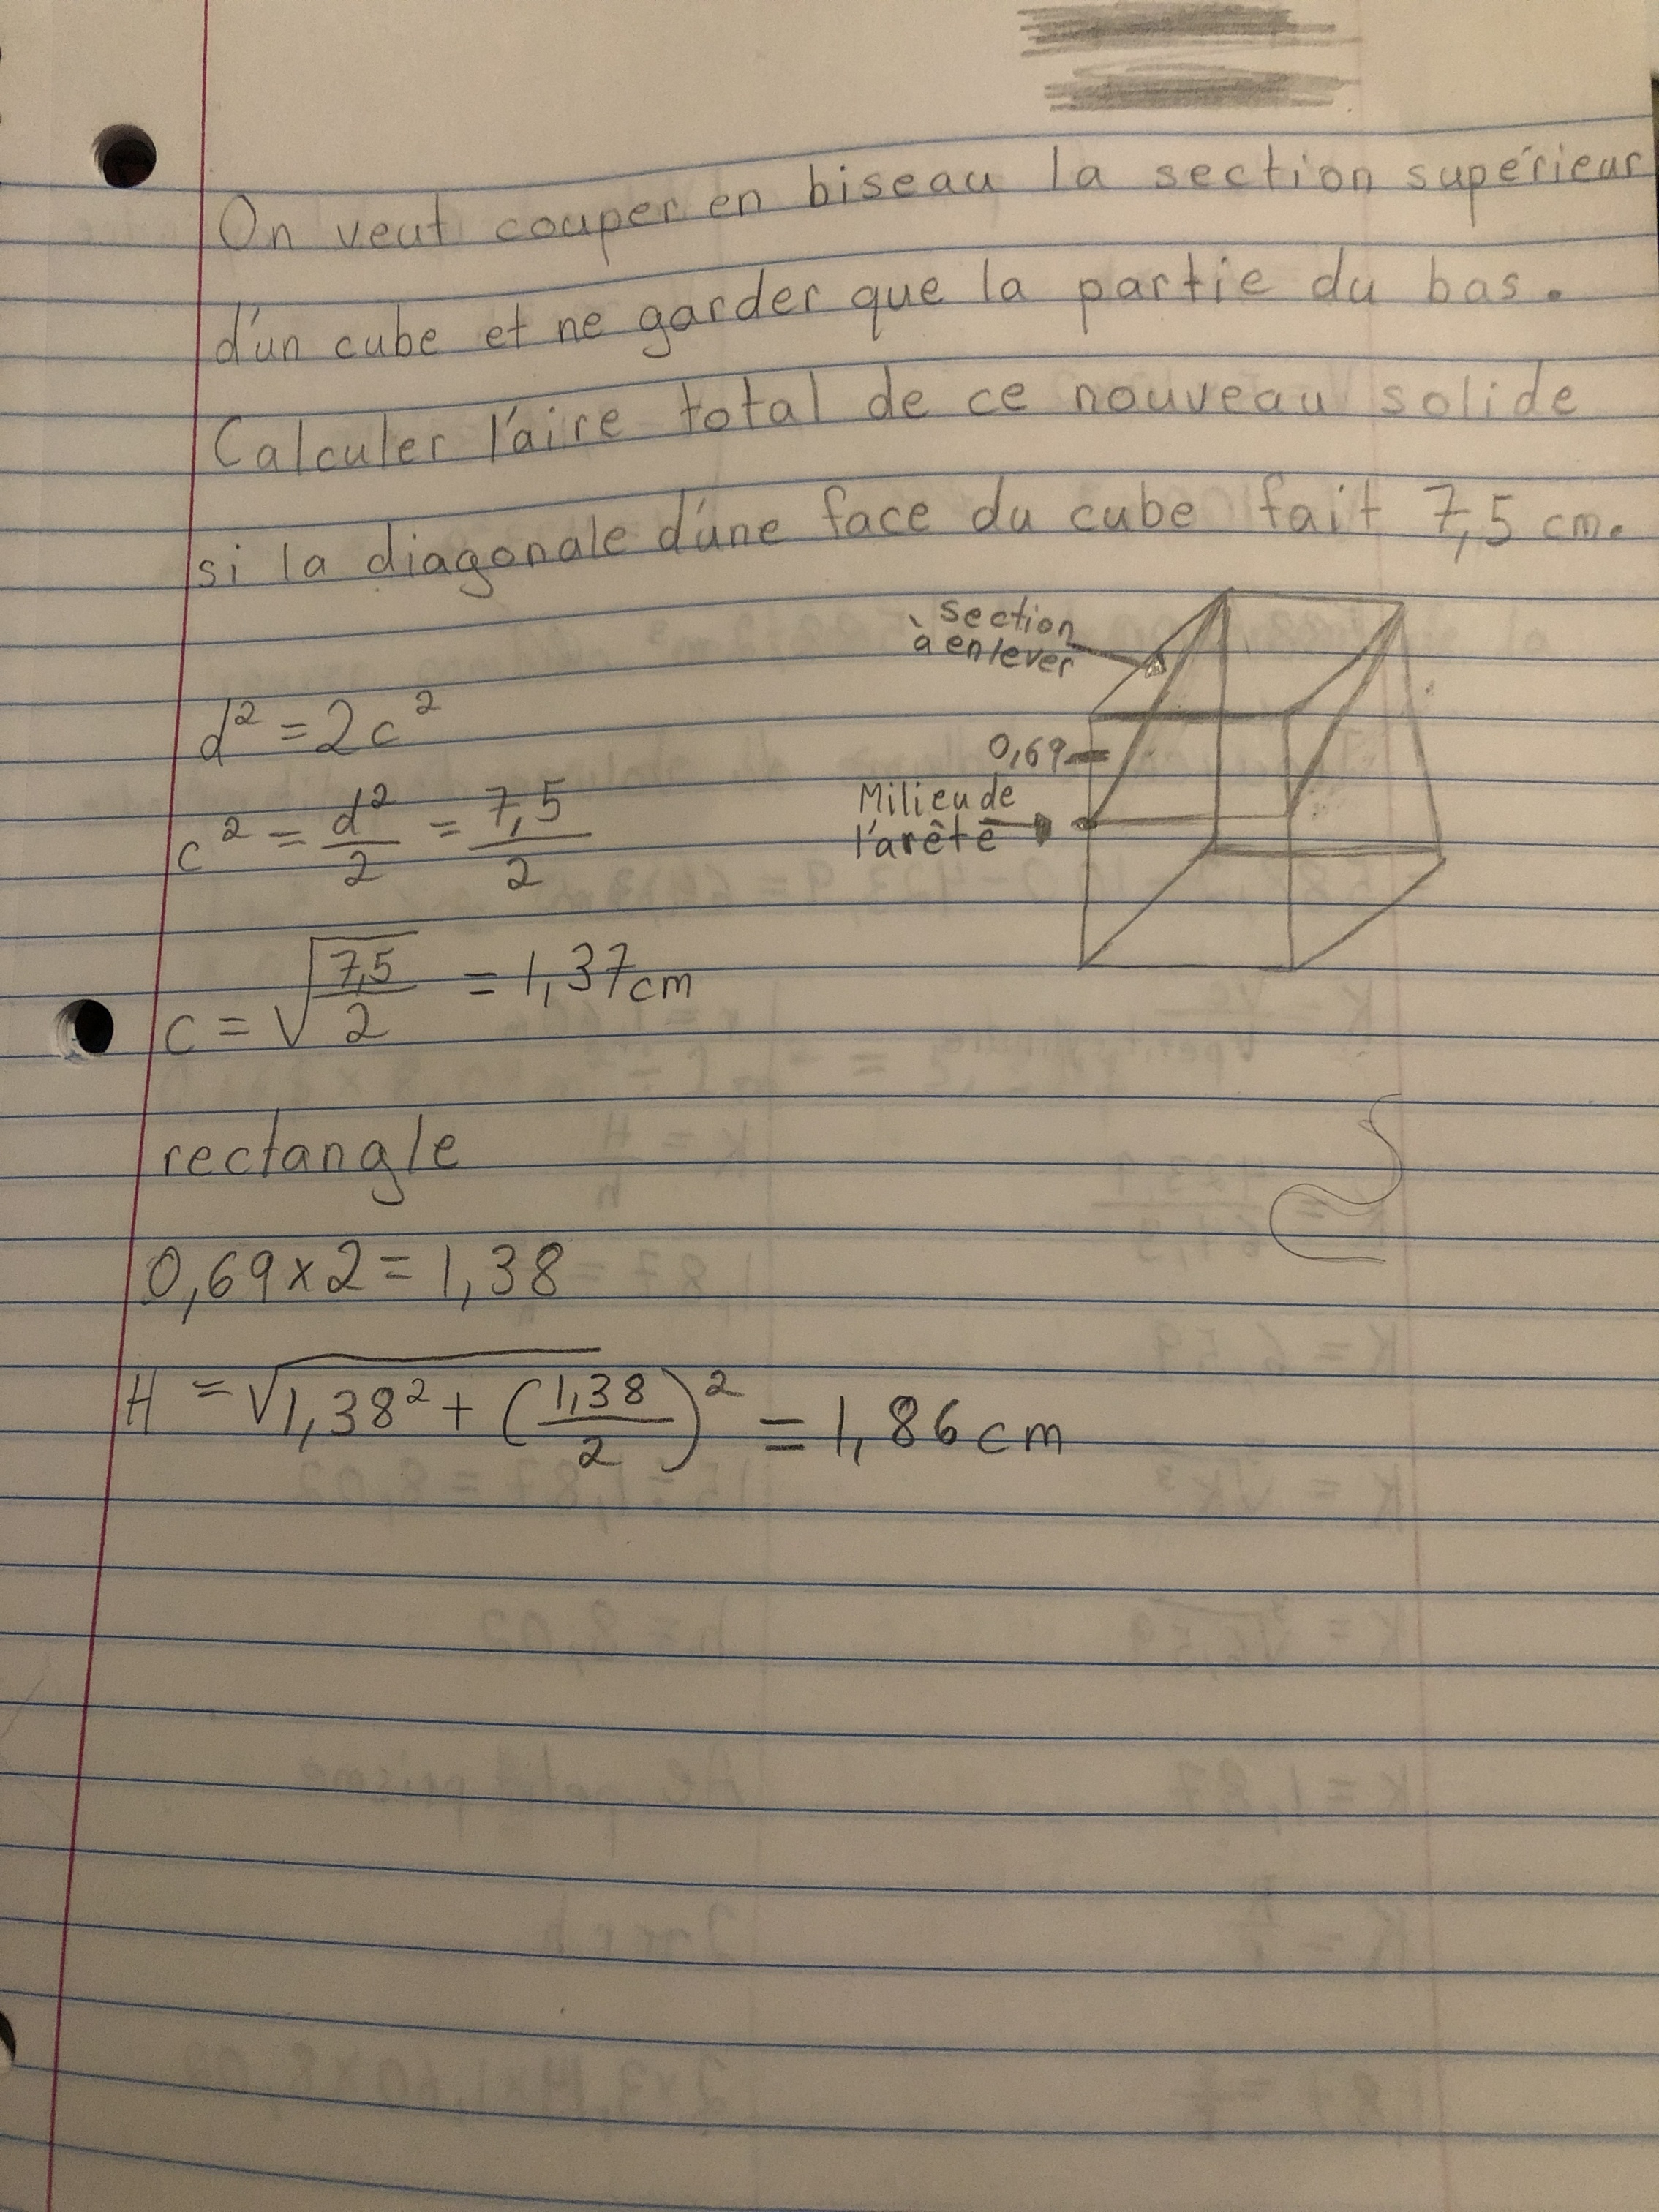 On veut couper en biseau la section supérieur
d'un cube et ne garder que la partie du bas.
Calculer l'aire total de ce nouveau solide
si la diagonale d'une face du cube fait 7,5 cm.
section
à enlever
0,69
Milieu de
l'arêté
d² = 2c²
c² = d²/2 = 7,5/2
c = √(7,5/2) = 1,37cm
rectangle
0,69 x 2 = 1,38
H = √1,38² + (1,38/2)² = 1,86 cm